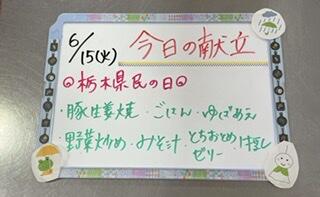 6/15(火) 今日の献立
◎栃木県民の日◎
・豚生姜焼・ごはん・ゆばあえ
・野菜炒め・みそ汁・とちおとめゼリー・汁椀